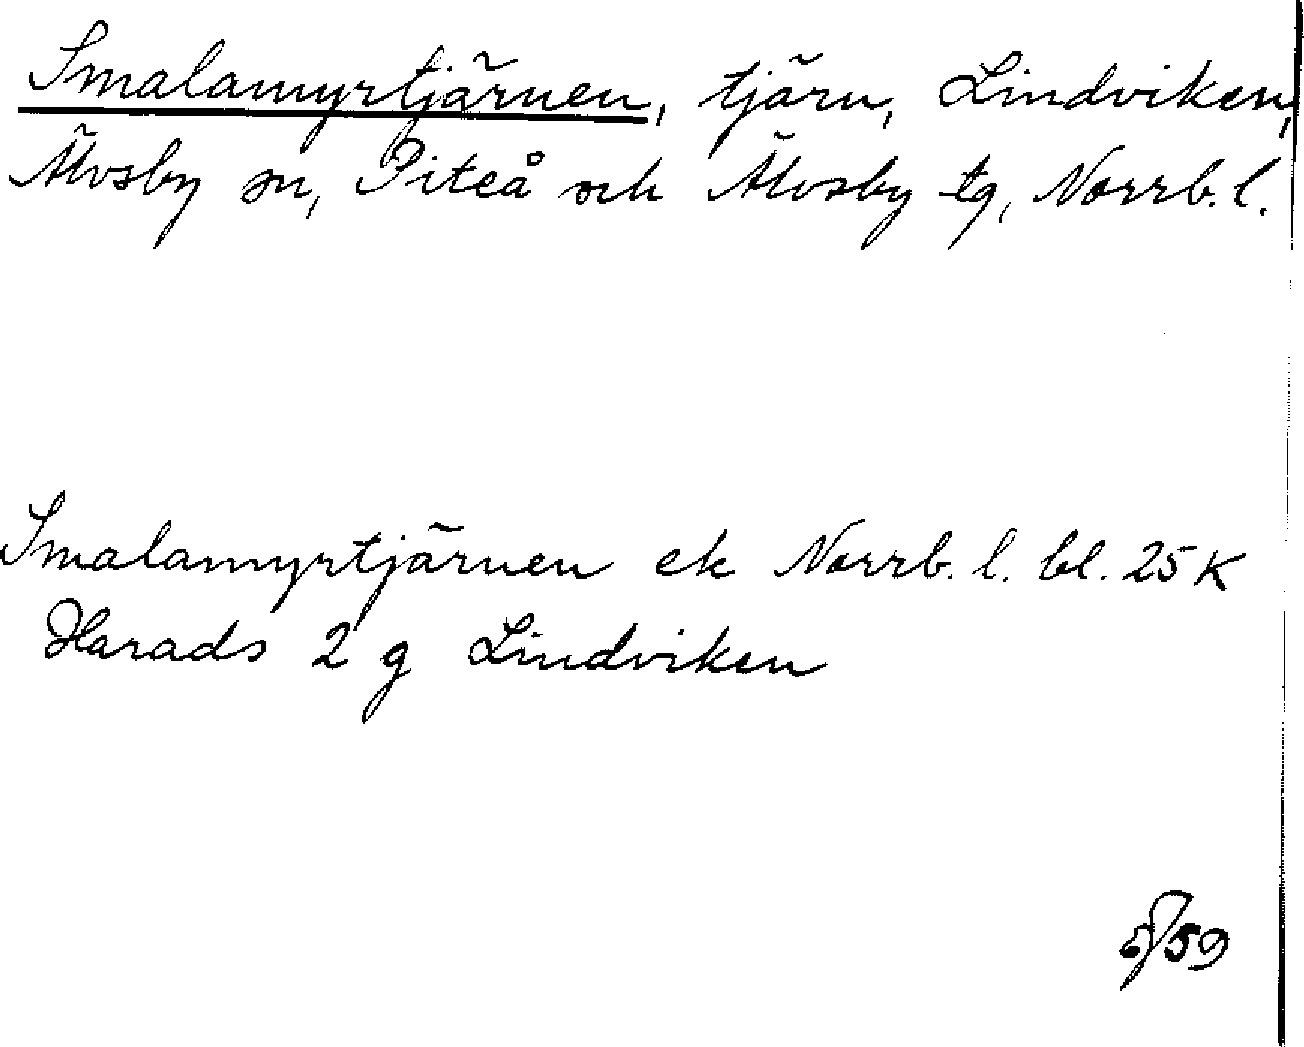 Smalamyrtjärnen, tjärn, Lindviken,
Älvsby sn, Piteå och Älvsby tg, Norrb. l.
Smalamyrtjärnen ek Norrb. l. bl. 25 K
Harads 2 g Lindviken